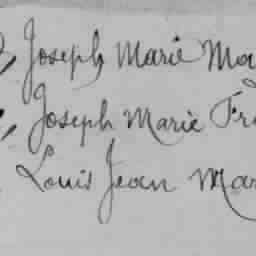 Joseph Marie Ma
Joseph Marie Fra
Louis Jean Mar